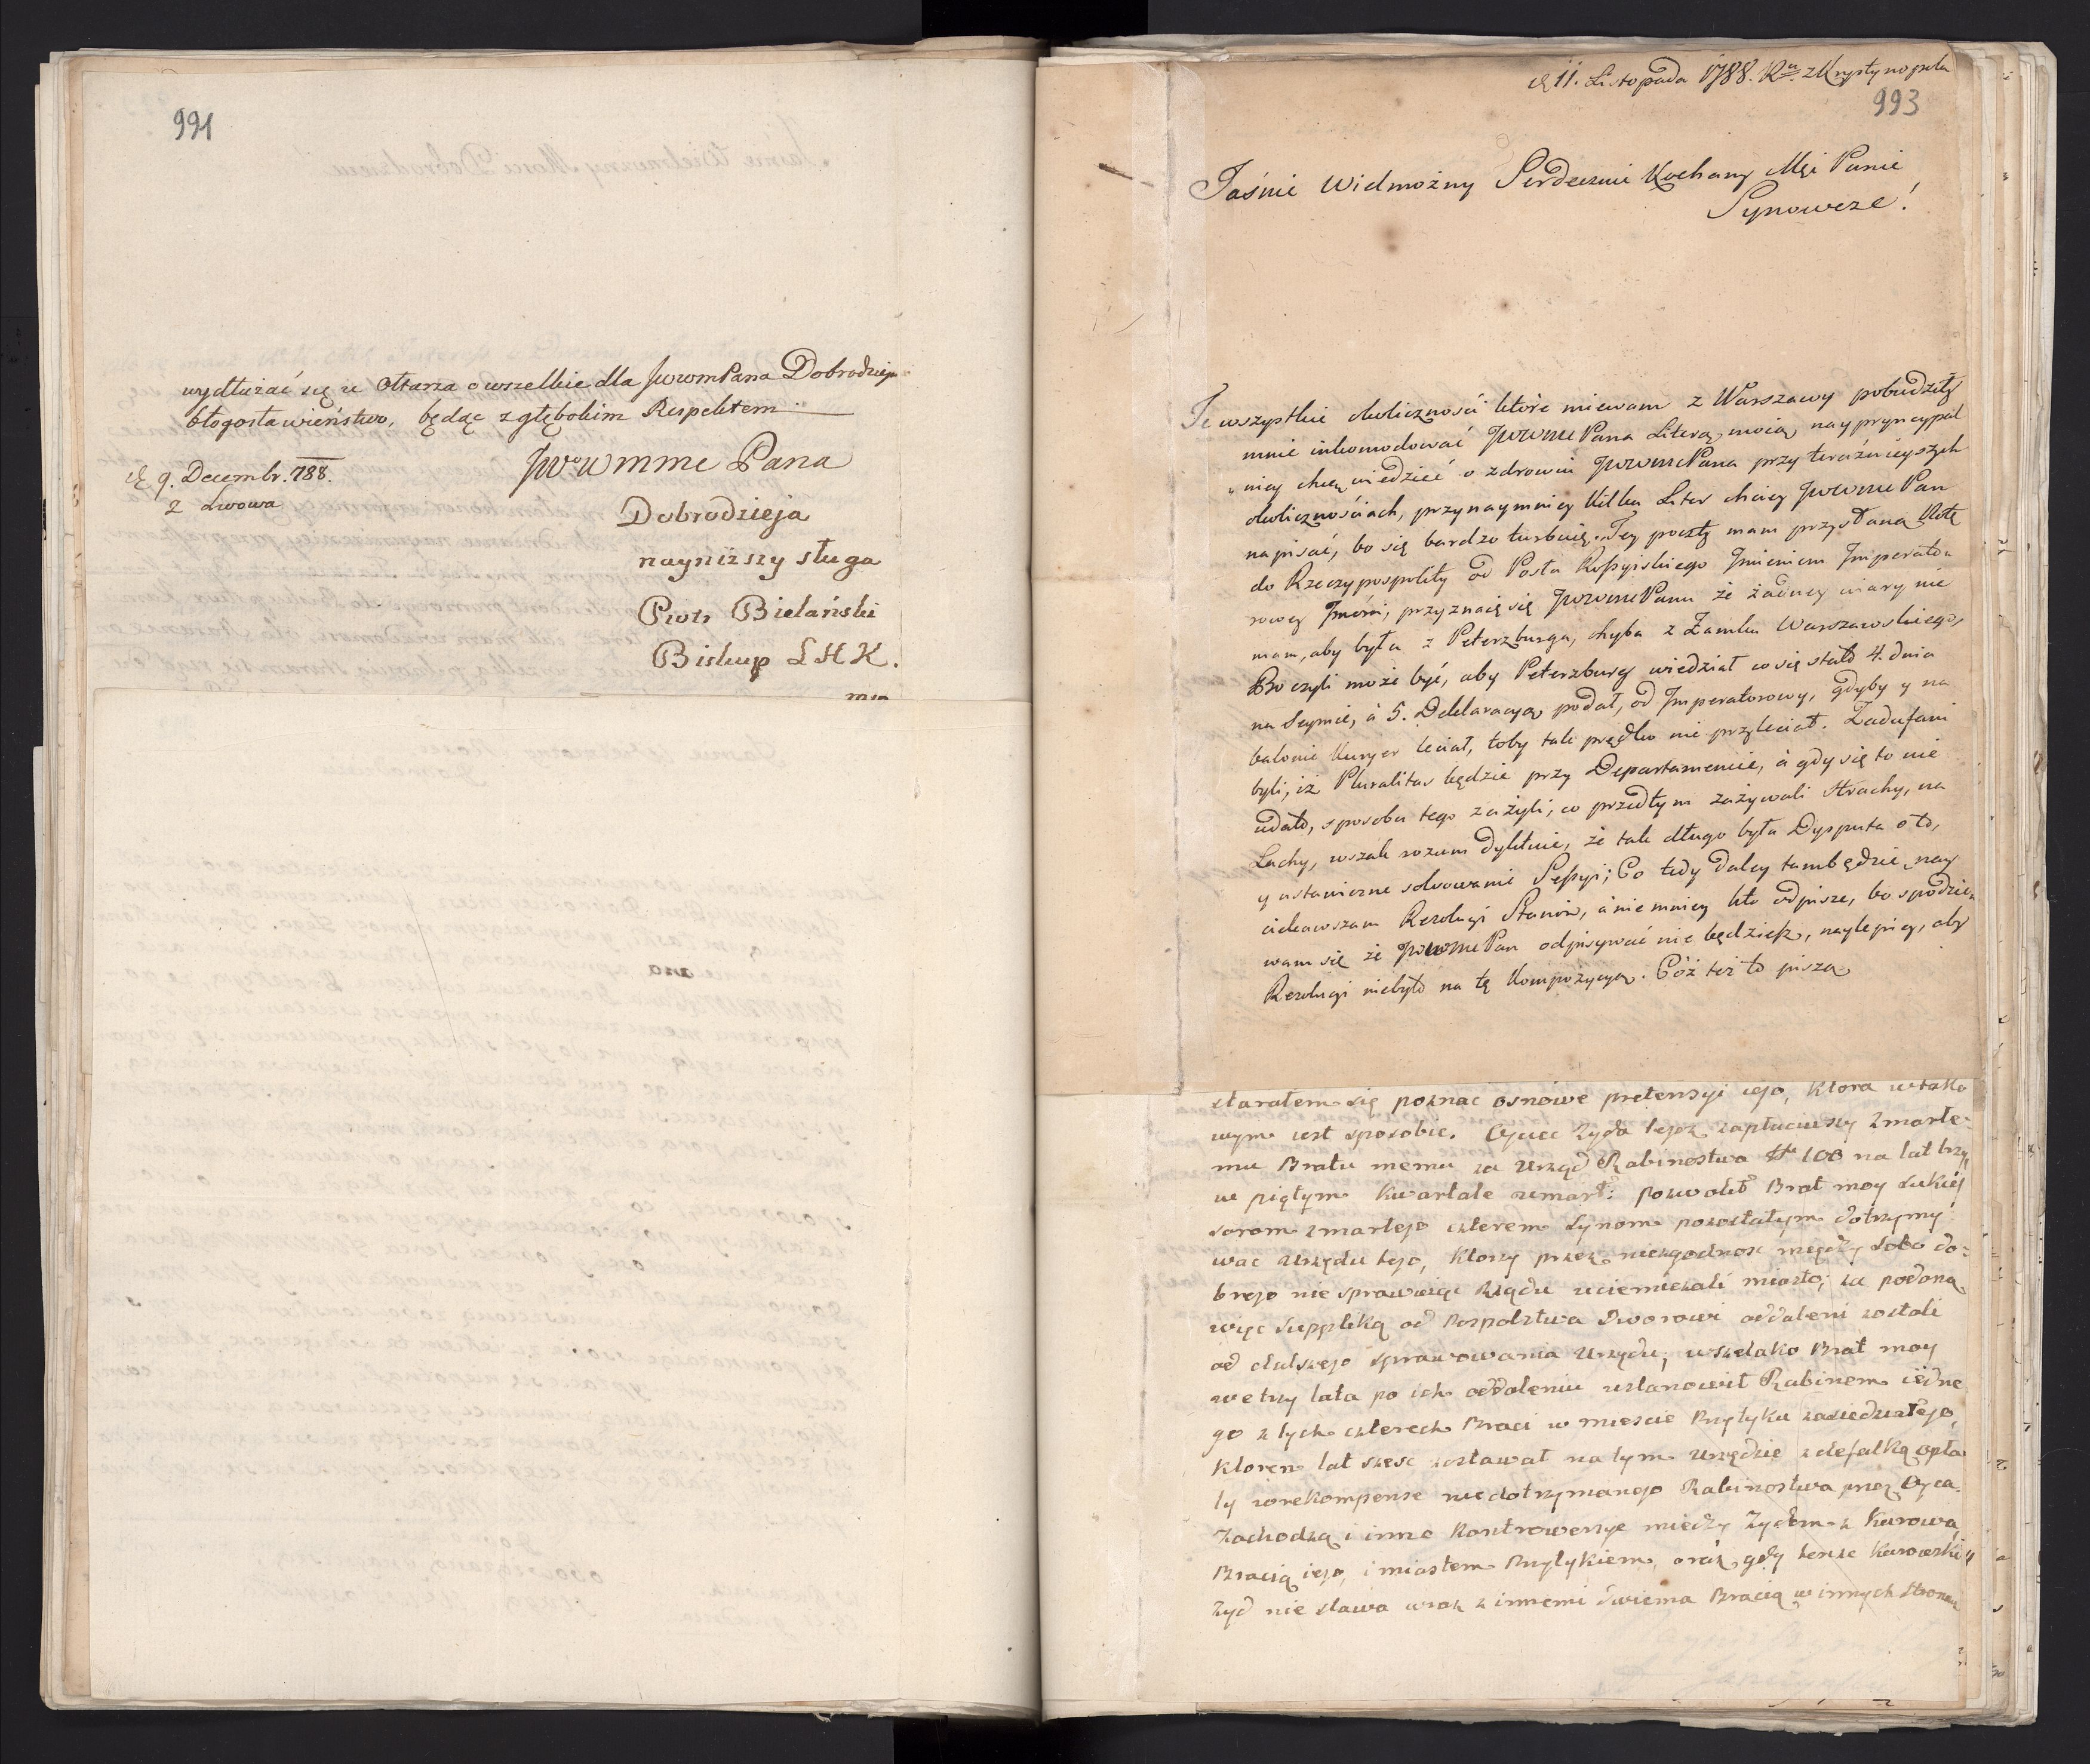 991
wydłużać się u Ołtarza o wszelkie dla JwwmPana Dobrodzieja
błogosławieństwo, będąc z głębokim Respektem
JWWmme Pana
d. 9. Decembr. 788.
z Lwowa
Dobrodzieja
nayniższy sługa
Piotr Bielański
Biskup LHK.
d. 11. Listopada 1788. Ru. z Krystynopola
993
Jaśnie Wielmożny Serdecznie Kochany Mći Panie
Synowcze!
Te wszystkie okoliczności które miewam z Warszawy pobudziły
mnie inkomodować JWWmePana Literą moią, naypryncypal
niey chcę wiedzieć o zdrowiu JWWmePana przy teraźnieyszych
okolicznościach, przynaymniey kilku Liter chciey JWWmePan
napisać, bo się bardzo turbuię. Tey poczty mam przysłaną Notę
do Rzeczypospolity od Posła Rossyiskiego Jmieniem Jmperato
rowey Jmości, przyznaię się JWWmePanu że żadney wiary nie
mam, aby była z Peterzburga, chyba z Zamku Warszawskiego,
Bo czyli może być, aby Peterzburg wiedział co się stało 4. dnia
na Seymie, á 5. Deklaracyą podał, od Jmperatorowy, gdyby y na
balonie Kuryer leciał, toby tak prędko nie przyleciał. Zadufani
byli, iż Pluralitas będzie przy Departamencie, á gdy się to nie
udało, sposobu tego zażyli, co przedtym zażywali Strachy, na
Lachy, wszak rozum dyktuie, że tak długo była Dysputa o to,
y ustawiczne solwowanie Sessyi; Co tedy daley tam będzie, nay
ciekawszam Rezolucyi Stanów, á nie mniey kto odpisze, bo spodzie
wam się że JWWmePan odpisywać nie będziesz, naylepiey, aby
Rezolucyi niebyło na tę Kompozycyą. Cóż też to piszą
starałem się poznać osnowę pretensyi iego, ktora w tako
wym iest sposobie. Oyciec żyda tegoż zapłaciwszy zmarłe
mu Bratu memu za Urząd Rabinostwa 100 na lat trzy
w piątym kwartale umarł: pozwolił Brat moy sukces
sorom zmarłego czterem synom pozostałym dotrzymy
wać Urzędu tego, ktorzy przez niezgodność między sobo do
brego nie sprawuiąc Rządu uciemiężali miasto; za podaną
więc supplikę od Pospolstwa Dworowi oddaleni zostali
od dalszego sprawowania Urzędu; wszelako Brat moy
we trzy lata po ich oddaleniu ustanowił Rabinem iedne
go z tych czterech Braci w mieście Przytyku zasiedziałego,
ktoren lat sześć zostawał na tym Urzędzie z defalką opła
ty w rekompensę niedotrzymanego Rabinostwa przez Oyca.
Zachodzą i inne Kontrowersye między Żydem z Kurowa,
Bracią iego, i miastem Przytykiem, oraz gdy tenże Kurowski
żyd nie stawa wraz z innemi dwiema Bracią w innych stronach